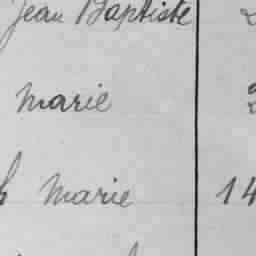 Jean Baptiste
Marie
Marie 14